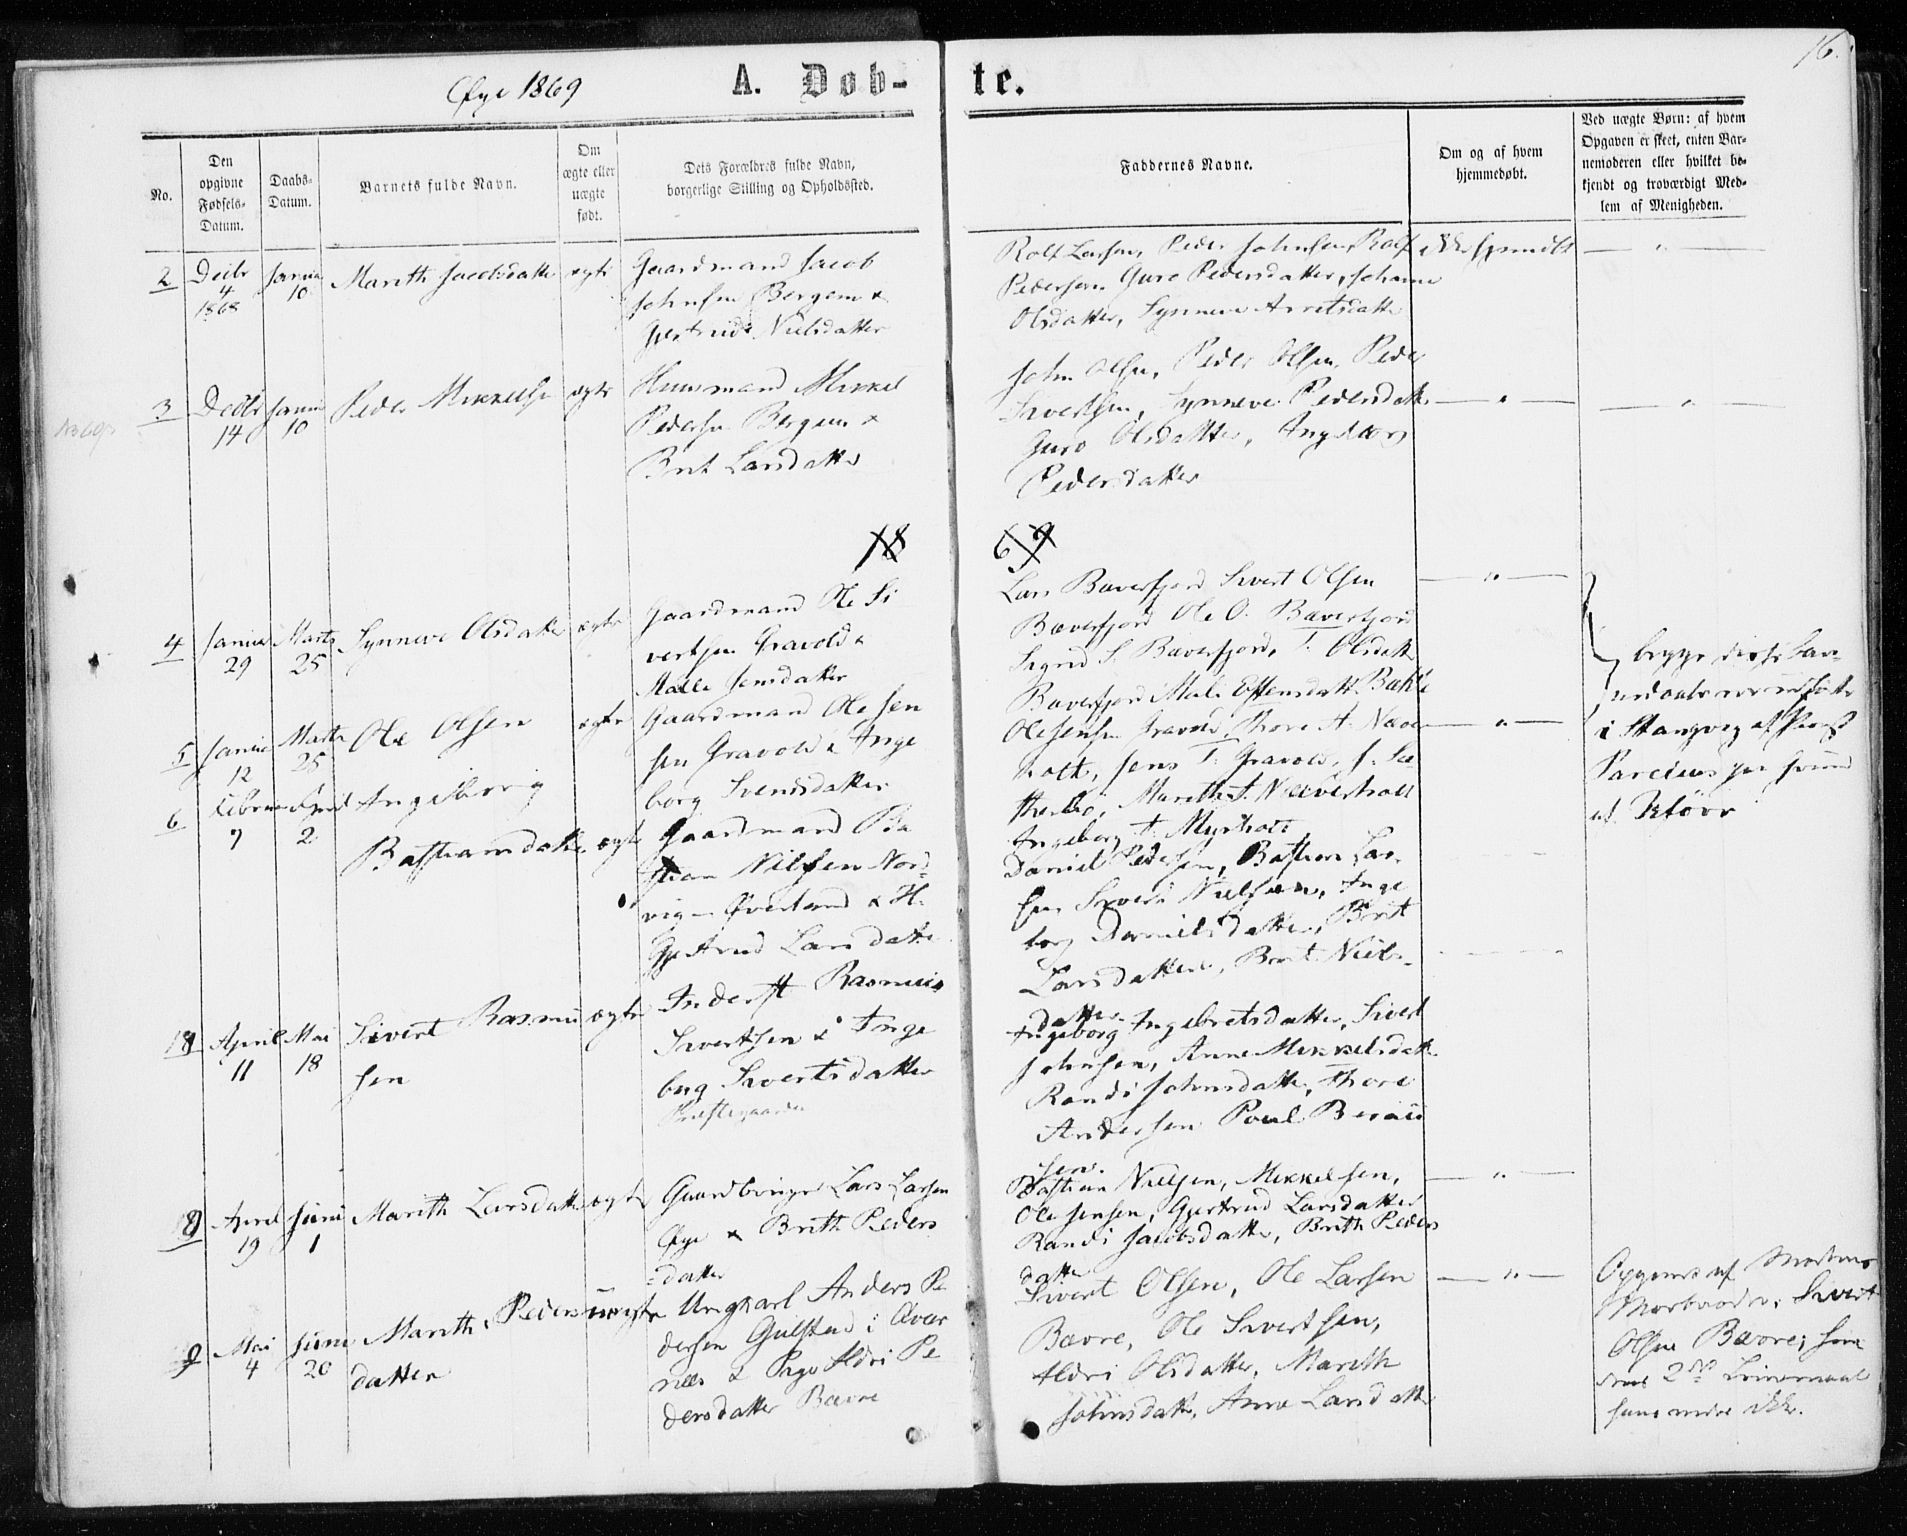 16.
Øye 1869
A. Døb-
te.
No.
Den
opgivne
Fødsels-
Datum.
Daabs-
Datum.
Barnets fulde Navn.
Om
ægte eller
uægte
født.
Dets Forældres fulde Navn,
borgerlige Stilling og Opholdssted.
Faddernes Navne.
Om og af hvem
hjemmedøbt.
Ved uægte Børn: af hvem
Opgaven er skeet, enten Bar-
nemoderen eller hvilket be-
kjendt og troværdigt Med-
lem af Menigheden.
2
Decbr
4
1868
Janua
10
Marith Jacobsdatter
ægte
Gaardmand Jacob
Johnsen Bergem &
Gjertrude Nielsdatter
Rolf Larsen, Peder Johnsen, Rolf
Pedersen Guro Pedersdatter, Johanne
Olsdatter, Synneve Arntsdatter
3
Decbr
14
Janu
10
Peder Mikkelsen
ægte
Huusmand Mikkel
Pedersen Bergem &
Brit Larsdatter
John Olsen, Peder Olsen, Peder
Sivertsen, Synneve Pedersdatter
Guro Olsdatter, Ingeborg
Pedersdatter
18
69
4
Januar
29
Marts
25
Synneve Olsdatter
ægte
Gaardmand Ole Si
vertsen Gravold &
Malle Jensdatter
Lars Bæverfjord Sivert Olsen
Bæverfjord Ole O. Bæverfjord
Sigrid S. Bæverfjord, T. Olsdatter
Bæverfjord Male Estensdatt. Bakke
5
Januar
12
Marts
25
Ole Olsen
ægte
Gaardmand Ole Jen
sen Gravold & Inge
borg Svendsdatter
Ole Jensen Gravold, Thore A. Næver
holt, Jens T. Gravold, J. Sæ
Marith J. Næverholt
Ingeborg T. Myrholt
begge disse
i Stangvig af
6
Februar
7
April
2
Ingeborg
Bastiansdatter
ægte
Gaardmand Ba
stian Nilsen Nord
vig - Øverland & H.
Gjertrud Larsdatter
Daniel Pedersen, Bastian Lar-
sen Sivert Nielsen, Inge
borg Danielsdatter, Brit
Larsdatter, Brit Niels-
datter
April
11
Mai
18
Sivert Rasmu
sen
ægte
Inderst Rasmus
Sivertsen & Inge
borg Sivertsdatter
Præstegaarden
Ingeborg Ingebretsdatter, Sivert
Johnsen, Anne Mikkelsdatt.
Randi Johnsdatter, Thore
Andersen Poul Beraas
sen.
8
April
19
Juni
1
Marith Larsdatter
ægte
Gaardbruger Lars Larsen
Øye & Brith Peders
datter
Bastian Nielsen, Mikkelsen,
Ole Jensen, Gjertrud Larsdatter
Randi Jacobsdatter, Brith Peders
datter
9
Mai
4
Juni
20
Marith, Peders
datter
uægte
Ungkarl Anders Pe
dersen Gulstad i Qver
næs & Pige Aldri Pe
dersdatter Bævre
Sivert Olsen, Ole Larsen
Bævre, Ole Sivertsen,
Aldri Olsdatter, Marith
Johnsdatt., Anne Larsdatter
Opgivet af Moderens
Morbroder, Sivert
Olsen Bævre;
2det Leiermaal
ikke.